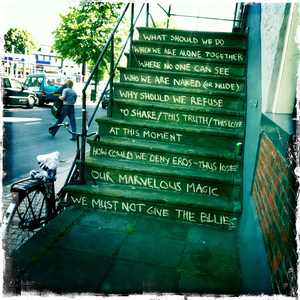 WHAT SHOULD WE DO
WHEN WE ARE ALONE TOGETHER
WHERE NO ONE CAN SEE
WHO WE ARE NAKED (OR NUDE)
WHY SHOULD WE REFUSE
TO SHARE/THIS TRUTH/THIS LOVE
AT THIS MOMENT
HOW COULD WE DENY EROS-THUS LOSE
OUR MARVELOUS MAGIC
WE MUST NOT GIVE THE BLUES